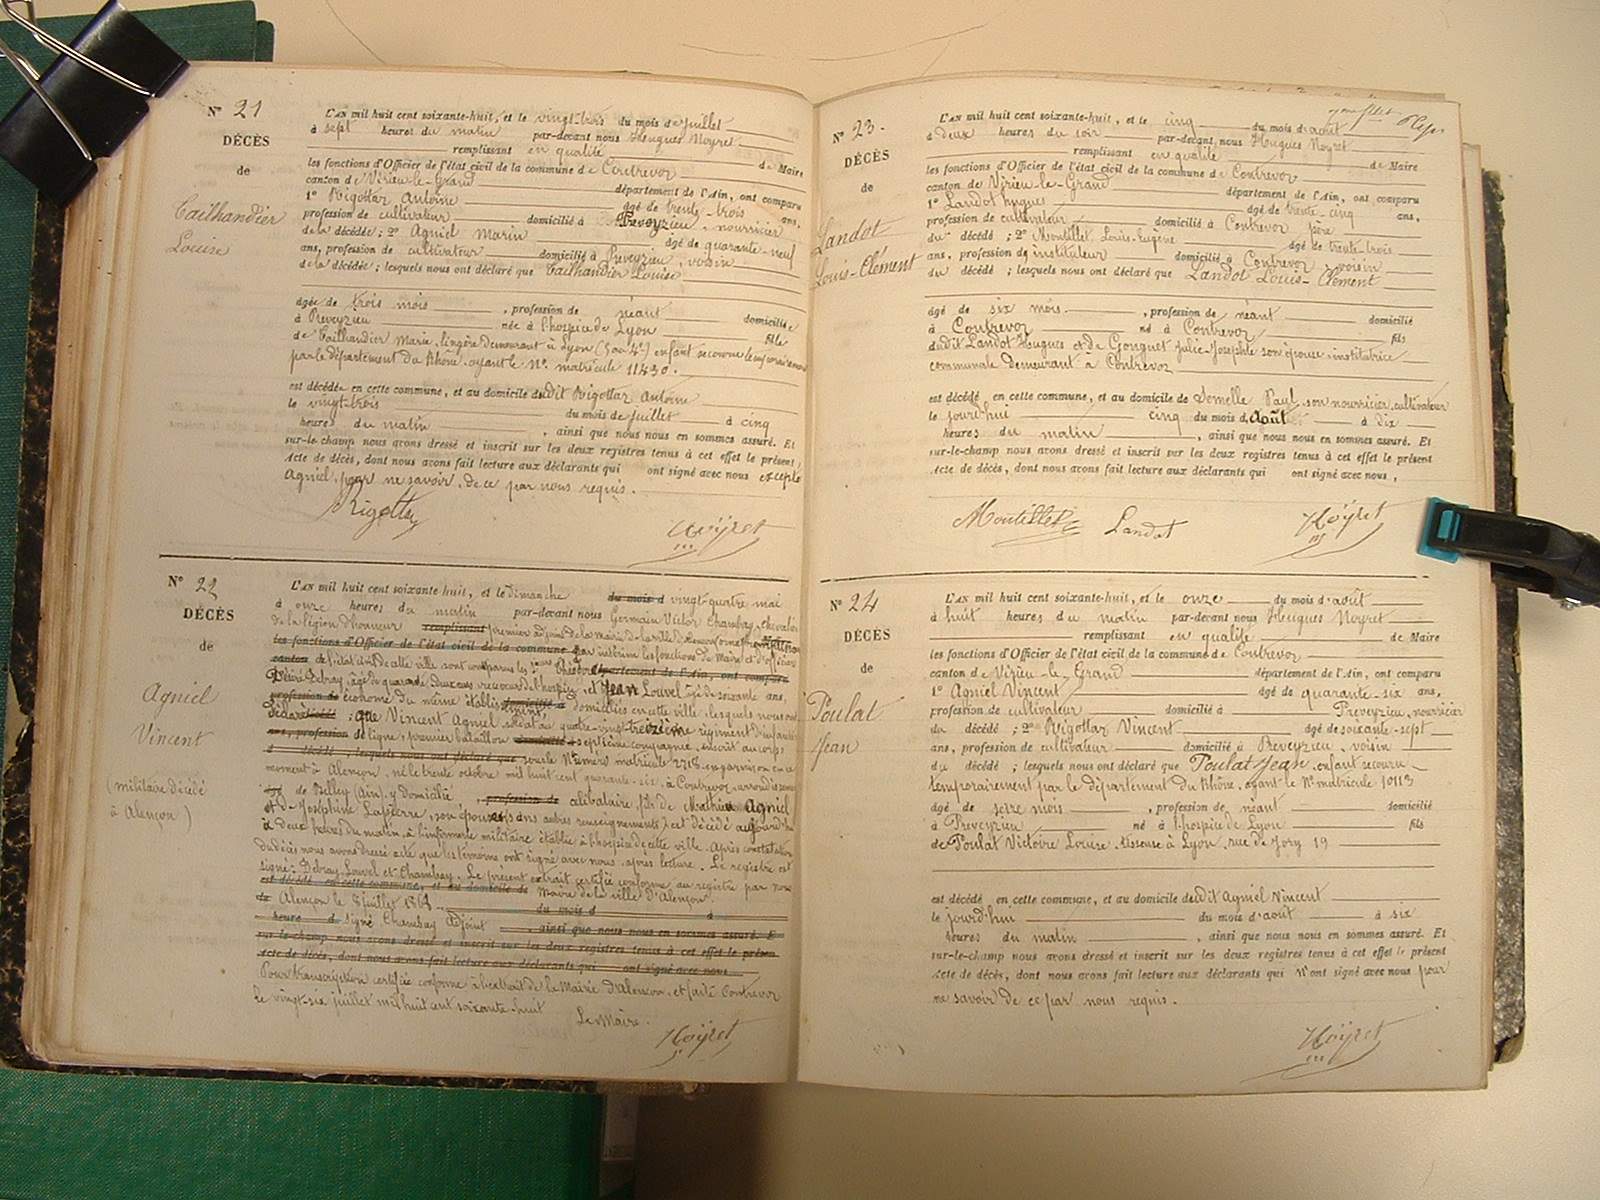 N° 21
DÉCÈS
de
Cailhandier
Louise
L'AN mil huit cent soixante-huit, et le vingt-trois du mois de juillet
à sept heures du matin par-devant nous Hugues Noyret
remplissant en qualité de Maire
les fonctions d'Officier de l'état civil de la commune de Contrevoz
canton de Virieu-le-Grand département de l'Ain, ont comparu
1° Rigottaz Antoine âgé de trente-trois ans,
profession de cultivateur domicilié à Preveyzieu, nourricier
de la décédée ; 2° Agniel Marin âgé de quarante-neuf
ans, profession de cultivateur domicilié à Preveyzieu, voisin
de la décédée ; lesquels nous ont déclaré que Cailhandier Louise
âgée de trois mois, profession de néant domiciliée
à Preveyzieu née à l'hospice de Lyon fille
de Cailhandier Marie, lingère demeurant à Lyon enfant
par le département du Rhône, ayant le N° matricule 11430.
est décédée en cette commune, et au domicile dudit Rigottaz Antoine
le vingt-trois du mois de juillet à cinq
heures du matin, ainsi que nous nous en sommes assuré. Et
sur-le-champ nous avons dressé et inscrit sur les deux registres tenus à cet effet le présent
acte de décès, dont nous avons fait lecture aux déclarants qui ont signé avec nous excepté
Agniel, pour ne savoir, de ce par nous requis.
Rigottaz Noyret
N° 22
DÉCÈS
de
Agniel
Vincent
(militaire décédé
à Alençon)
L'AN mil huit cent soixante-huit, et le dimanche du mois d vingt-quatre mai
à onze heures du matin par-devant nous Germain Victor Chambay, chevalier
de la légion d'honneur remplissant premier adjoint de la mairie de la ville d'Alençon
les fonctions d'Officier de l'état civil de la commune par intérim les fonctions de Maire et d'officier
canton de l'état civil de cette ville sont comparus les département de l'Ain, ont comparu
Désiré Debray, âgé de quarante deux ans receveur de l'hospice, et Jean Louvel âgé de soixante ans,
profession de économe du même établissement domiciliés en cette ville, lesquels nous ont
déclaré que Vincent Agniel soldat au quatre-vingt-treizième régiment d'infanterie
ans, profession de ligne, premier bataillon domicilié à septième compagnie, inscrit au corps
d décédé ; lesquels nous ont déclaré que sous le Numéro matricule en garnison en ce
moment à Alençon, né le trente octobre mil huit cent quarante-six, à Contrevoz, arrondissement
de Belley (Ain), y domicilié, profession de célibataire fils de Mathieu Agniel
et de Joséphine Lapierre, son épouse (sans autres renseignements) est décédé aujourd'hui
à deux heures du matin, à l'infirmerie militaire établie à l'hospice de cette ville. Après constatation
du décès nous avons dressé acte que les témoins ont signé avec nous, après lecture. Le registre est
signé : Debray, Louvel et Chambay. Le présent extrait certifié conforme au registre par nous
est décédé en cette commune, et au domicile de Maire de la ville d'Alençon.
Alençon le 8 juillet 1868. du mois d à
heure d signé Chambay Adjoint, ainsi que nous nous en sommes assuré. Et
sur-le-champ nous avons dressé et inscrit sur les deux registres tenus à cet effet le présent
acte de décès, dont nous avons fait lecture aux déclarants qui ont signé avec nous
Pour transcription certifiée conforme à l'extrait de la Mairie d'Alençon, et faite Contrevoz
le vingt-six juillet mil huit cent soixante-huit
Le Maire.
Noyret
N° 23.
DÉCÈS
de
Landot
Louis-Clément
L'AN mil huit cent soixante-huit, et le cinq du mois d'août
à deux heures du soir par-devant nous Hugues Noyret
remplissant en qualité de Maire
les fonctions d'Officier de l'état civil de la commune de Contrevoz
canton de Virieu-le-Grand département de l'Ain, ont comparu
1° Landot Hugues âgé de trente-cinq ans,
profession de cultivateur domicilié à Contrevoz père
du décédé ; 2° Montillet Louis-Eugène âgé de trente-trois
ans, profession d'instituteur domicilié à Contrevoz, voisin
du décédé ; lesquels nous ont déclaré que Landot Louis-Clément
âgé de six mois, profession de néant domicilié
à Contrevoz né à Contrevoz fils
dudit Landot Hugues et de Gonguet Julie-Josephte son épouse, institutrice
communale demeurant à Contrevoz
est décédé en cette commune, et au domicile de Demelle Paul, son nourricier, cultivateur
le jourd'hui cinq du mois d'Août à dix
heures du matin, ainsi que nous nous en sommes assuré. Et
sur-le-champ nous avons dressé et inscrit sur les deux registres tenus à cet effet le présent
acte de décès, dont nous avons fait lecture aux déclarants qui ont signé avec nous,
Montillet Landot Noyret
N° 24
DÉCÈS
de
Poulat
Jean
L'AN mil huit cent soixante-huit, et le onze du mois d'août
à huit heures du matin par-devant nous Hugues Noyret
remplissant en qualité de Maire
les fonctions d'Officier de l'état civil de la commune de Contrevoz
canton de Virieu-le-Grand département de l'Ain, ont comparu
1° Agniel Vincent âgé de quarante-six ans,
profession de cultivateur domicilié à Preveyzieu, nourricier
du décédé ; 2° Rigottaz Vincent âgé de soixante-sept
ans, profession de cultivateur domicilié à Preveyzieu, voisin
du décédé ; lesquels nous ont déclaré que Poulat Jean, enfant secouru
temporairement par le département du Rhône, ayant le N° matricule 10113
âgé de seize mois, profession de néant domicilié
à Preveyzieu né à l'hospice de Lyon fils
de Poulat Victoire Louise, tisseuse à Lyon, rue de Jory 19
est décédé en cette commune, et au domicile dudit Agniel Vincent
le jourd'hui du mois d'août à six
heures du matin, ainsi que nous nous en sommes assuré. Et
sur-le-champ nous avons dressé et inscrit sur les deux registres tenus à cet effet le présent
acte de décès, dont nous avons fait lecture aux déclarants qui n'ont signé avec nous pour
ne savoir de ce par nous requis.
Noyret